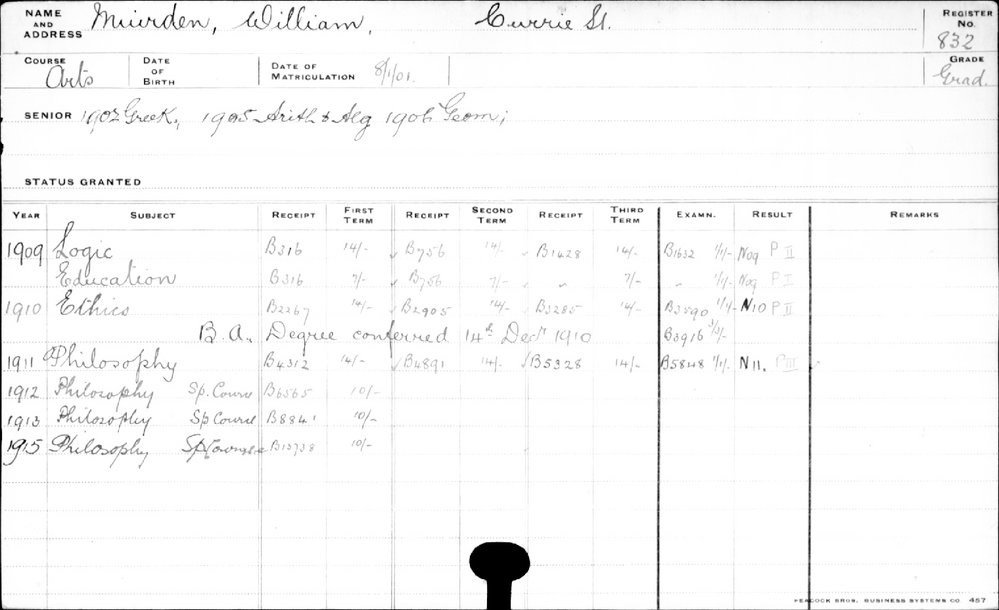 NAME AND ADDRESS Muirden, William, Currie St. REGISTER No. 832
COURSE Arts DATE OF BIRTH DATE OF MATRICULATION 8/1/01. GRADE Grad.
SENIOR 1902 Greek, 1905 Arith & Alg 1906 Geom;
STATUS GRANTED
YEAR SUBJECT RECEIPT FIRST TERM RECEIPT SECOND TERM RECEIPT THIRD TERM EXAMN. RESULT REMARKS
1909 Logic B316 14/- B756 14/- B1428 14/- B1632 1/1/- No9 P II
Education B316 7/- B756 7/- " 7/- " 1/1/- No9 P I
1910 Ethics B2267 14/- B2905 14/- B3285 14/- B3590 1/1/- N10 P II
B.A. Degree conferred 14th Decr 1910 B3916 3/3/-
1911 Philosophy B4312 14/- B4891 14/- B5328 14/- B5848 1/1/- N11. P III
1912 Philosophy Sp. Course B6565 10/-
1913 Philosophy Sp Course B8841 10/-
1915 Philosophy Sp Course B13738 10/-
PEACOCK BROS. BUSINESS SYSTEMS CO. 457